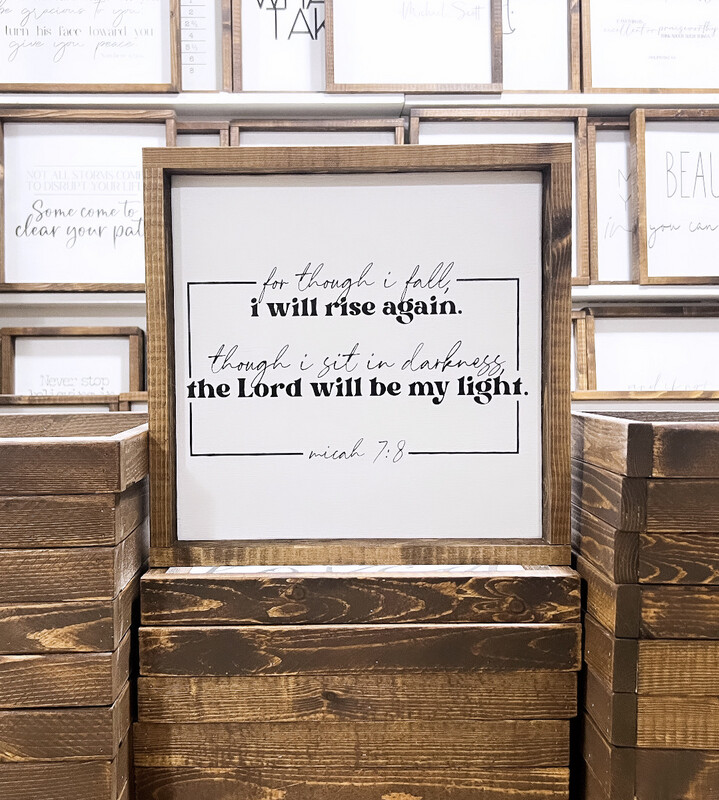 be gracious to you
turn his face toward you
give you peace
TAK
Michael Scott
NOT ALL STORMS COME
TO DISRUPT YOUR LIFE
Some come to
clear your pat
BEAU
in
you can
Never stop
for though i fall,
i will rise again.
though i sit in darkness,
the Lord will be my light.
micah 7:8